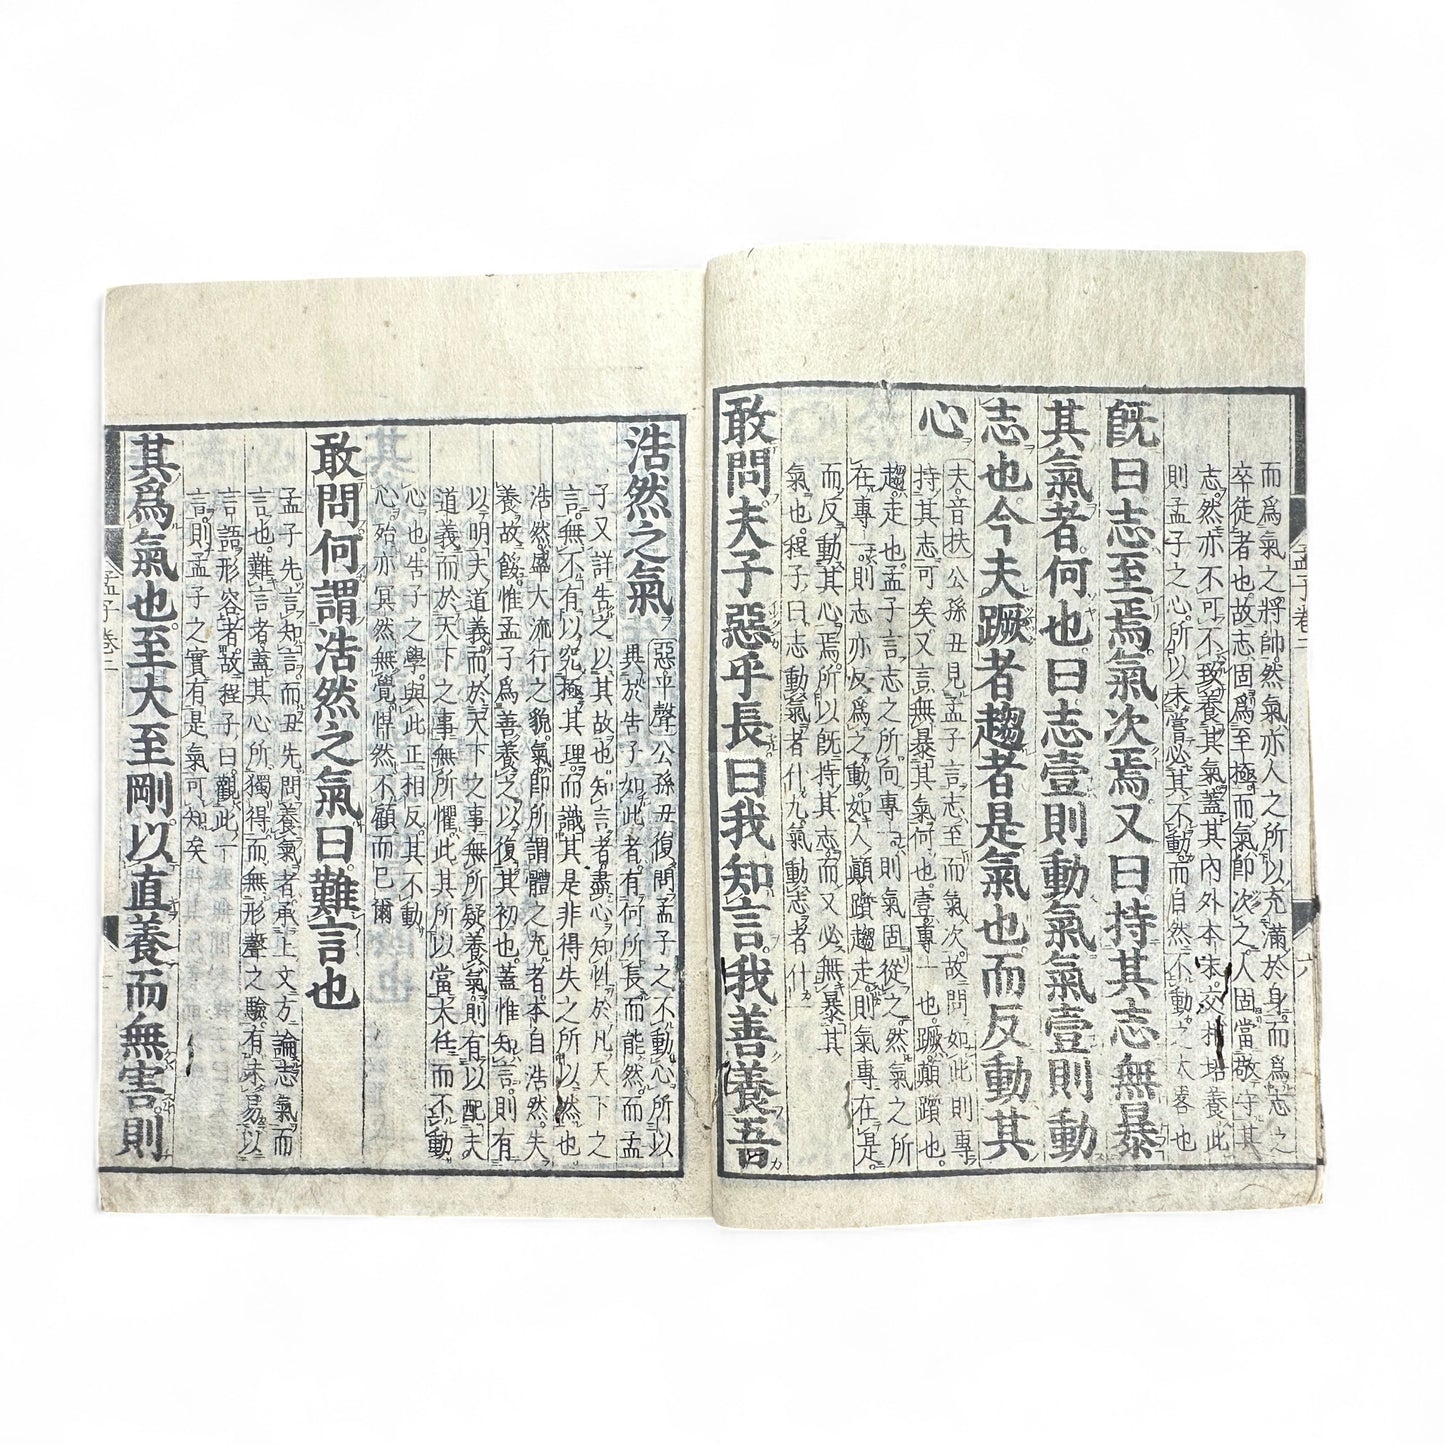 而爲氣之將帥然氣亦人之所以充滿於身而爲志之
卒徒者也故志固爲至極而氣卽次之人固當敬守其
志然亦不可不致養其氣蓋其內外本末交相培養此
則孟子之心所以未嘗必其不動而自然不動之大畧也
旣曰志至焉氣次焉又曰持其志無暴
其氣者何也曰志壹則動氣氣壹則動
志也今夫蹶者趨者是氣也而反動其
心
夫音扶公孫丑見孟子言志至而氣次故問如此則專
持其志可矣又言無暴其氣何也壹專一也蹶顚躓也
趨走也孟子言志之所向專一則氣固從之然氣之所
在專一則志亦反爲之動如人顚躓趨走則氣專在是
而反動其心焉所以旣持其志而又必無暴其
氣也程子曰志動氣者什九氣動志者什一
敢問夫子惡乎長曰我知言我善養吾
浩然之氣
惡平聲公孫丑復問孟子之不動心所以
異於告子如此者有何所長而能然而孟
子又詳告之以其故也知言者盡心知性於凡天下之
言無不有以究極其理而識其是非得失之所以然也
浩然盛大流行之貌氣卽所謂體之充者本自浩然失
養故餒惟孟子爲善養之以復其初也蓋惟知言則有
以明夫道義而於天下之事無所疑養氣則有以配夫
道義而於天下之事無所懼此其所以當大任而不動
心也告子之學與此正相反其不動
心殆亦冥然無覺悍然不顧而已爾
敢問何謂浩然之氣曰難言也
孟子先言知言而丑先問養氣者承上文方論志氣而
言也難言者蓋其心所獨得而無形聲之驗有未易以
言語形容者故程子曰觀此一
言則孟子之實有是氣可知矣
其爲氣也至大至剛以直養而無害則
孟子卷二